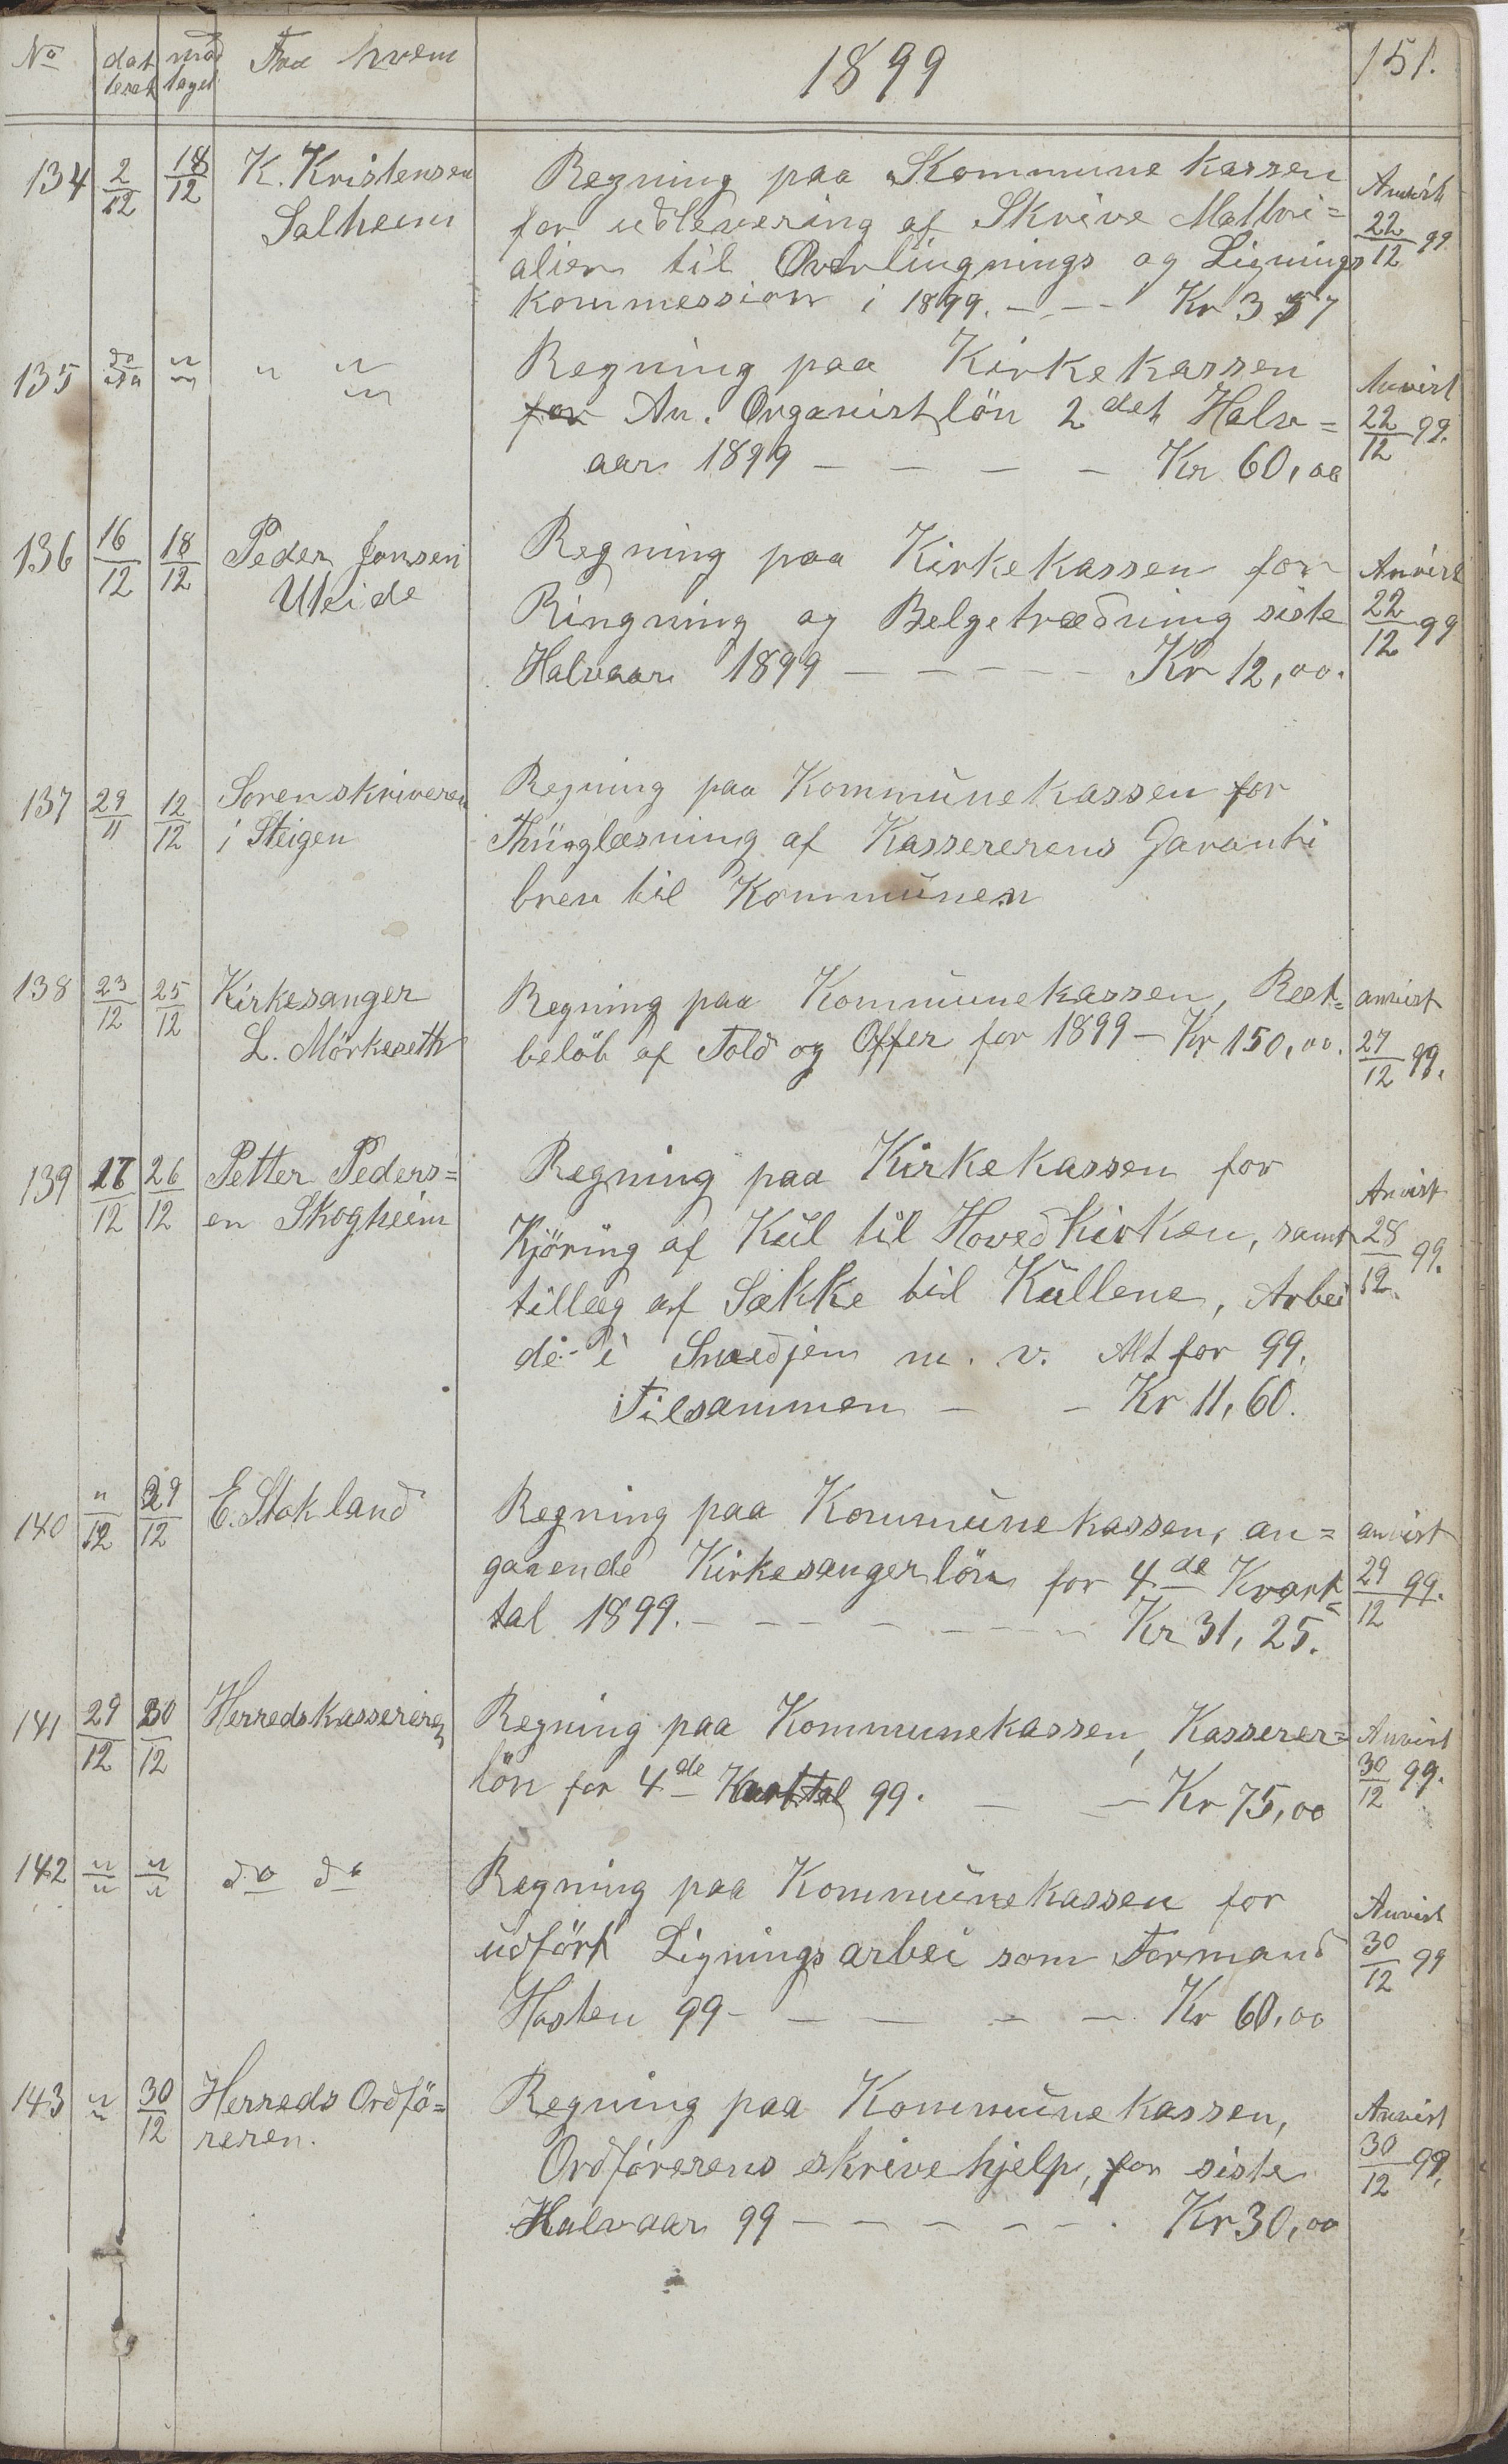 No dat teret mod taget Fra hvem 1899 151.
134 2/12 18/12 K. Kristensen Regning paa Kommune kassen Anvist
Salheim for udlevering af Skrive Mattri= 22/12 99
alier til Overlignings og Lignings
kommession i 1899. - - - Kr 3 57
135 do " " " Regning paa Kirkekassen Anvist
for An. Organistlön 2det Halv= 22/12 99.
aar 1899 - - - - Kr 60,00
136 16/12 18/12 Peder Jonsen Regning paa Kirkekassen for Anvist
Uteide Ringning og Belgetrædning siste 22/12 99
Halvaar 1899 - - - - - Kr 12,00.
137 29/11 12/12 Sorenskriveren Regning paa Kommunekassen for
i Steigen Thinglæsning af Kassererens Garanti
brev til Kommunen
138 23/12 25/12 Kirkesanger Regning paa Kommunekassen, Rest= anvist
L. Mörkeseth belöb af Told og Offer for 1899 - Kr 150,00. 27/12 99.
139 17/12 26/12 Petter Peders= Regning paa Kirkekassen for Anvist
en Skogheim Kjöring af Kul til Hovedkirken, samt 28/12 99.
tillæg af Sække til Kullene, Arbei
de i Smedjen m. v. Alt for 99.
Tilsammen - - Kr 11,60.
140 "/12 29/12 E. Stokland Regning paa Kommunekassen, an= anvist
gaaende Kirkesangerlön for 4de Kvart= 29/12 99.
tal 1899. - - - - - - - Kr 31,25.
141 29/12 30/12 Herredskassereren Regning paa Kommunekassen, Kasserer= Anvist
lön for 4de Kvartal 99. - - Kr 75,00 30/12 99.
142 " " do do Regning paa Kommunekassen for Anvist
udfört Ligningsarbei som Formand 30/12 99
Hösten 99 - - - - - Kr 60,00
143 " 30/12 Herreds Ordfö= Regning paa Kommunekassen, Anvist
reren. Ordförerens skrivehjelp, for siste 30/12 99.
Halvaar 99 - - - - - . Kr 30,00